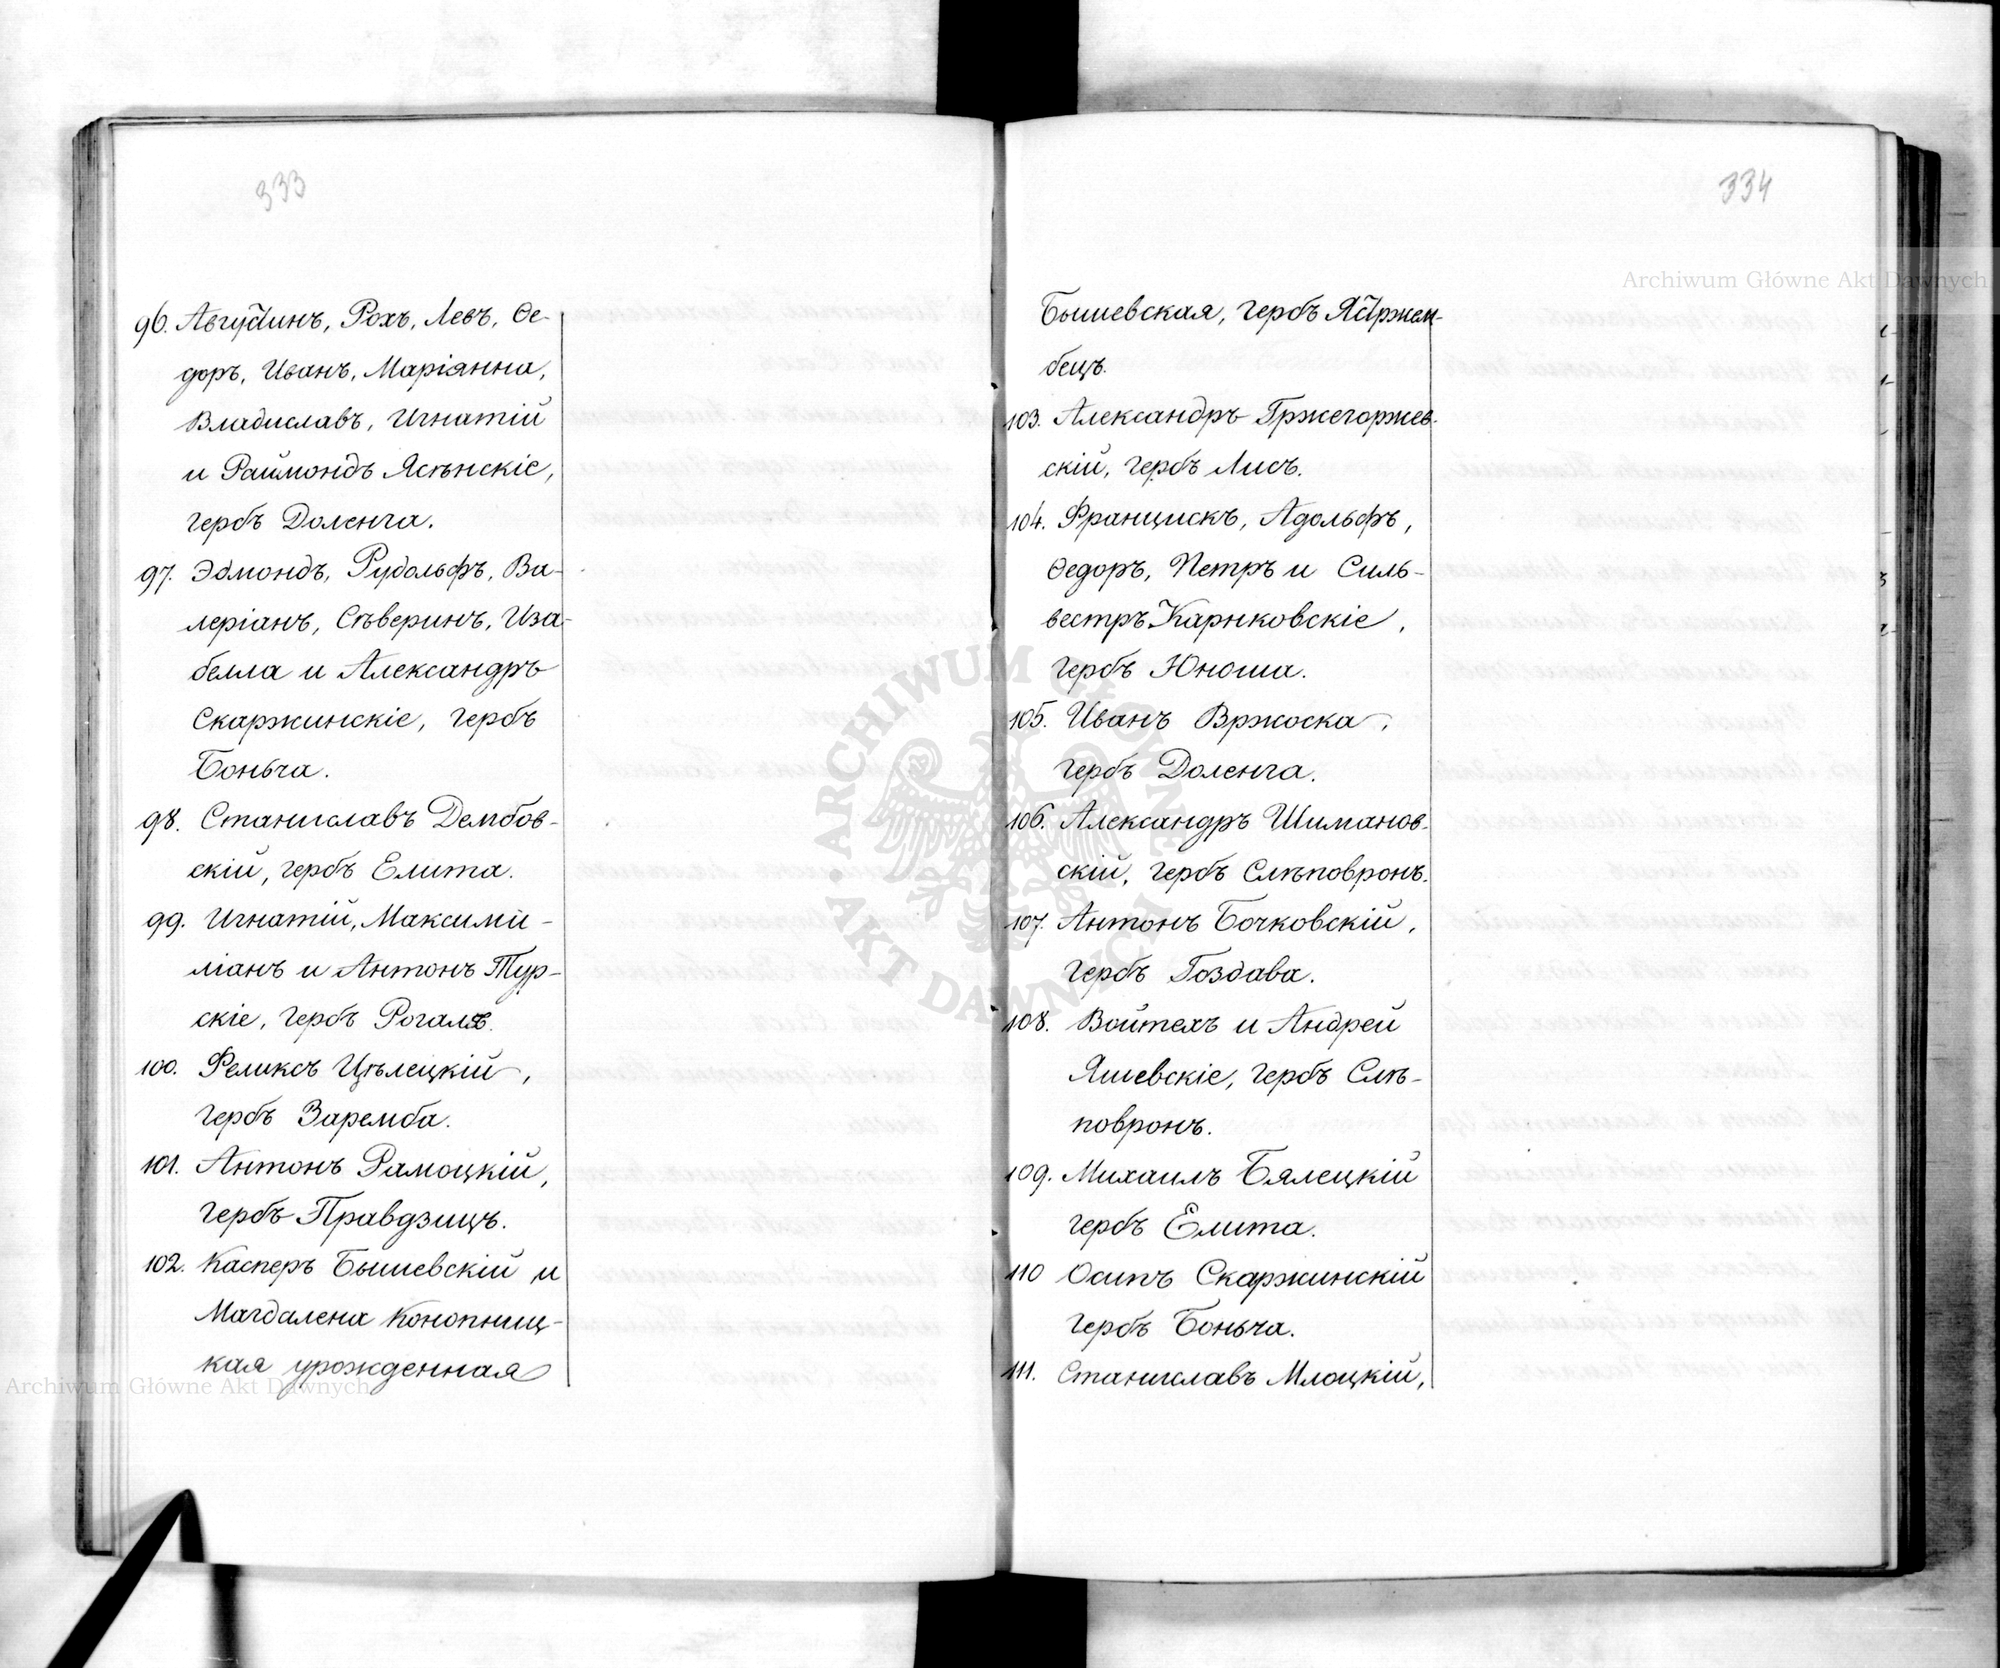 333
96. Августинъ, Рохъ, Левъ, Ѳе-
доръ, Иванъ, Маріянна,
Владиславъ, Игнатій
и Раймондъ Ясѣнскіе,
гербъ Доленга.
97. Эдмондъ, Рудольфъ, Ва-
леріанъ, Сѣверинъ, Иза-
белла и Александръ
Скаржинскіе, гербъ
Боньча.
98. Станиславъ Дембов-
скій, гербъ Елита.
99. Игнатій, Максими-
ліанъ и Антонъ Тур-
скіе, гербъ Рогаля.
100. Феликсъ Цѣлецкій,
гербъ Заремба.
101. Антонъ Рамоцкій,
гербъ Правдзицъ.
102. Касперъ Бышевскій и
Магдалена Конопниц-
кая урожденная
334
Бышевская, гербъ Ястржем-
бецъ.
103. Александръ Гржегоржев-
скій, гербъ Лисъ.
104. Францискъ, Адольфъ,
Ѳедоръ, Петръ и Силь-
вестръ Карнковскіе,
гербъ Юноша.
105. Иванъ Вржоска,
гербъ Доленга.
106. Александръ Шиманов-
скій, гербъ Слѣповронъ.
107. Антонъ Бочковскій,
гербъ Гоздава.
108. Войтехъ и Андрей
Яшевскіе, гербъ Слѣ-
повронъ.
109. Михаилъ Бялецкій
гербъ Елита.
110 Осипъ Скаржинскій
гербъ Боньча.
111. Станиславъ Млоцкій,
Archiwum Główne Akt Dawnych
Archiwum Główne Akt Dawnych
ARCHIWUM GŁÓWNE
AKT DAWNYCH